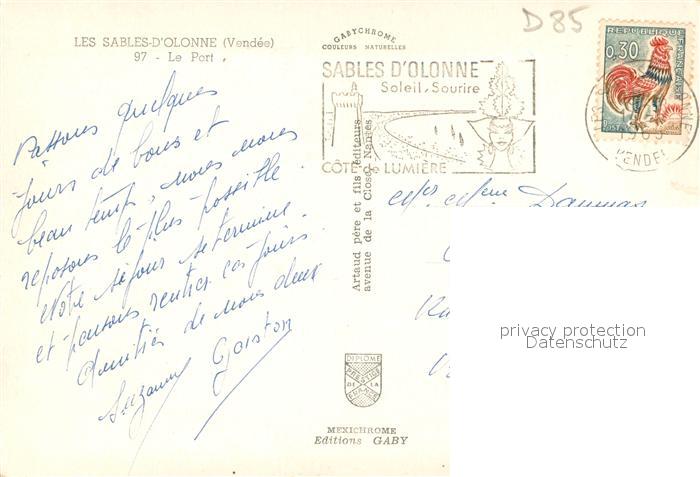 D85
LES SABLES-D'OLONNE (Vendée)
97 - Le Port
GABYCHROME
COULEURS NATURELLES
SABLES D'OLONNE
Soleil, Sourire
CÔTE de LUMIÈRE
REPUBLIQUE FRANÇAISE
0,30
POSTES
VENDEE
Passons quelques
jours de bons et
beau temps, nous nous
reposons le plus possible.
Notre séjour se termine
et pensons rentrer ces jours
Amitiés de nous deux
Suzanne Gaston
Artaud père et fils éditeurs
avenue de la Close, Nantes
Mr Mme
DIPLOME
PRESTIGE
DE LA
FRANCE
MEXICHROME
Editions GABY
privacy protection
Datenschutz